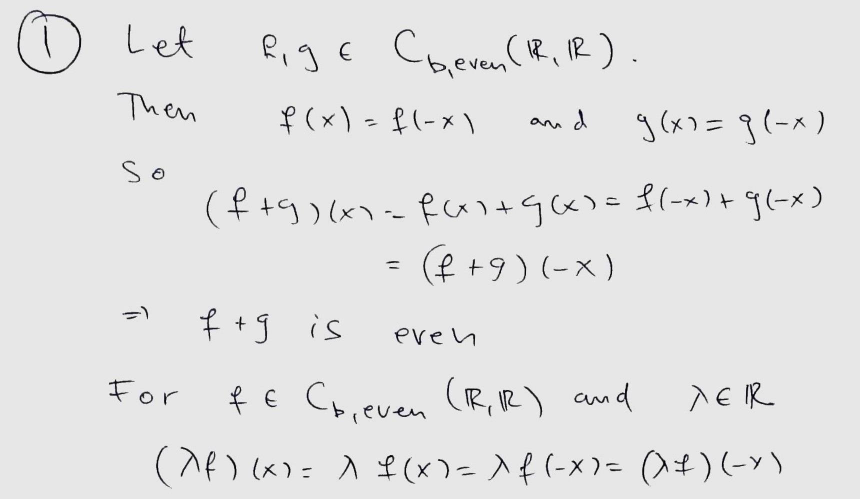 ① Let f, g ∈ C_{b,even}(ℝ, ℝ).
Then f(x) = f(-x) and g(x) = g(-x)
So
(f+g)(x) = f(x)+g(x) = f(-x)+g(-x)
= (f+g)(-x)
⇒ f+g is even
For f ∈ C_{b,even}(ℝ, ℝ) and λ ∈ ℝ
(λf)(x) = λ f(x) = λ f(-x) = (λf)(-x)